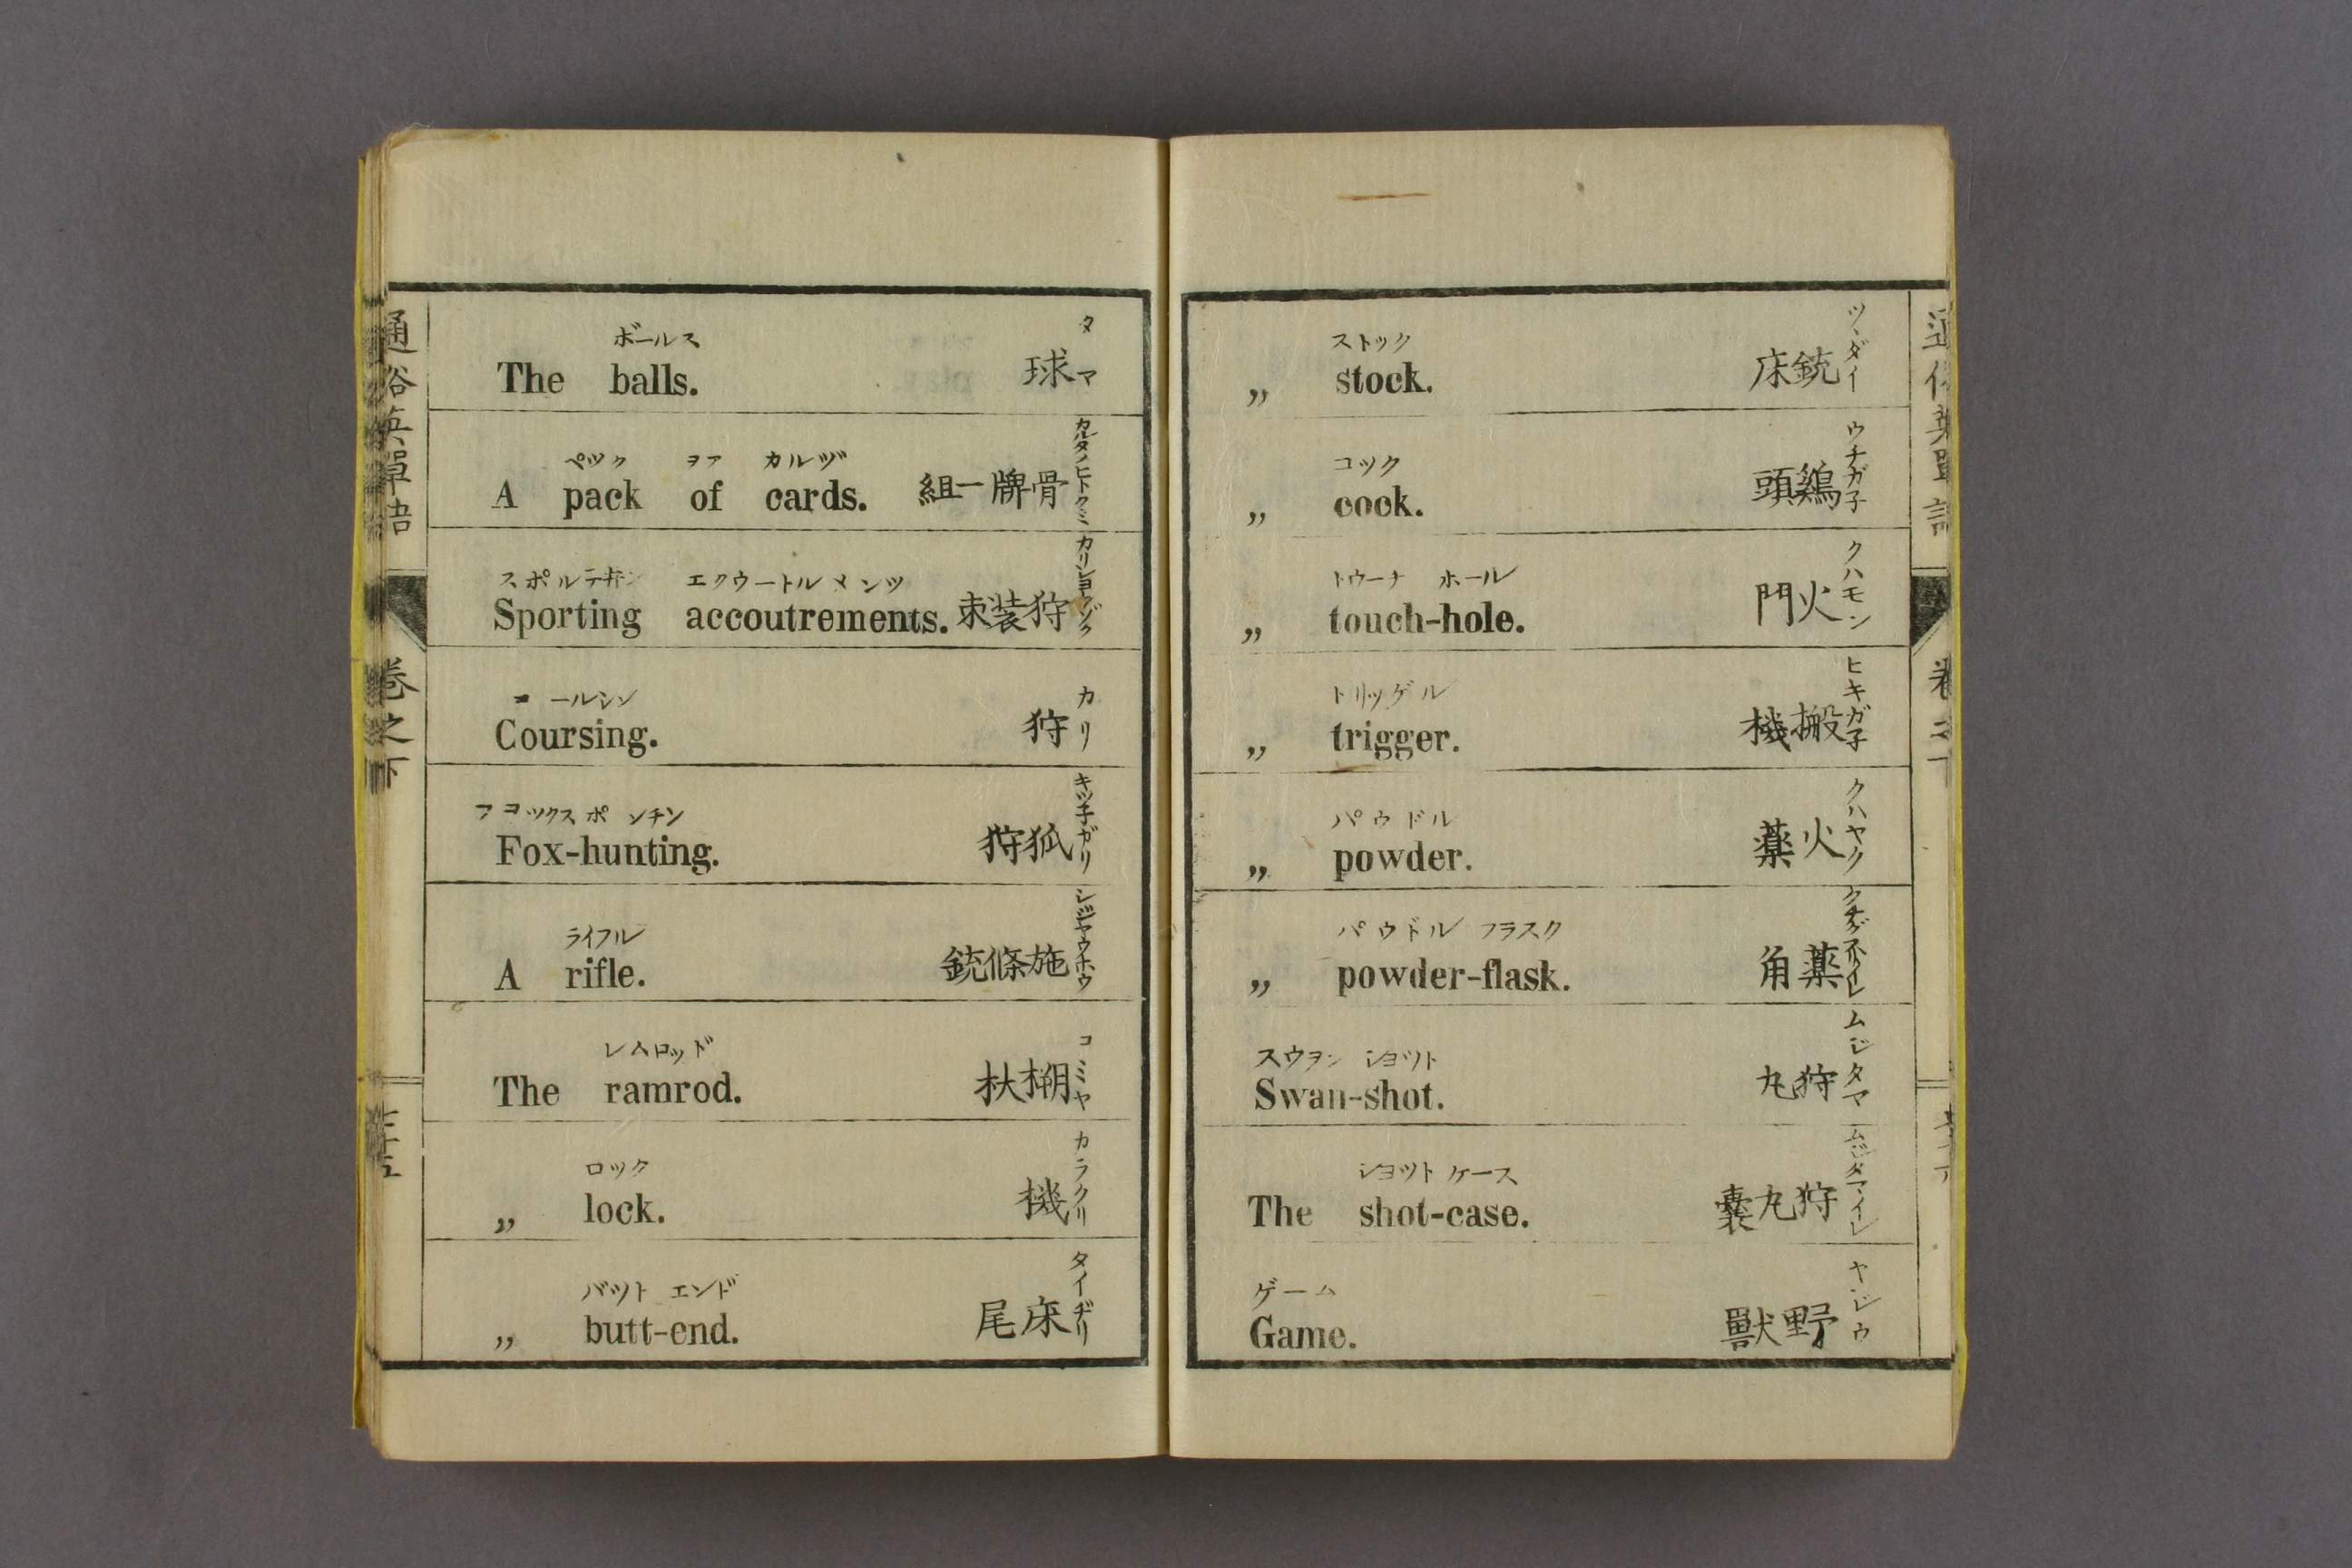 通俗英單語
卷之下
ボールス
The balls.
球
タマ
ペツク ヲフ カルヅ
A pack of cards.
骨牌一組
カルタノヒトクミ
スポルテ井ン エクウートルメンツ
Sporting accoutrements.
狩装束
カリシヨウゾク
コールシン
Coursing.
狩
カリ
フヲツクスホンチン
Fox-hunting.
狐狩
キツ子ガリ
ライフル
A rifle.
施條銃
シジヤウホウ
レムロッド
The ramrod.
コミヤ
ロック
„ lock.
機
カラクリ
バツト エンド
„ butt-end.
床尾
タイヂリ
ストック
„ stock.
銃床
ツヽダイ
コック
„ cock.
鶏頭
ウチガ子
トウーチ ホール
„ touch-hole.
火門
クハモン
トリッゲル
„ trigger.
搬機
ヒキガ子
パウドル
„ powder.
火薬
クハヤク
パウドル フラスク
„ powder-flask.
薬角
スウヲン ショツト
Swan-shot.
狩丸
ムジタマ
ショツト ケース
The shot-case.
狩丸嚢
ムジダマイレ
ゲーム
Game.
野獸
ヤジウ